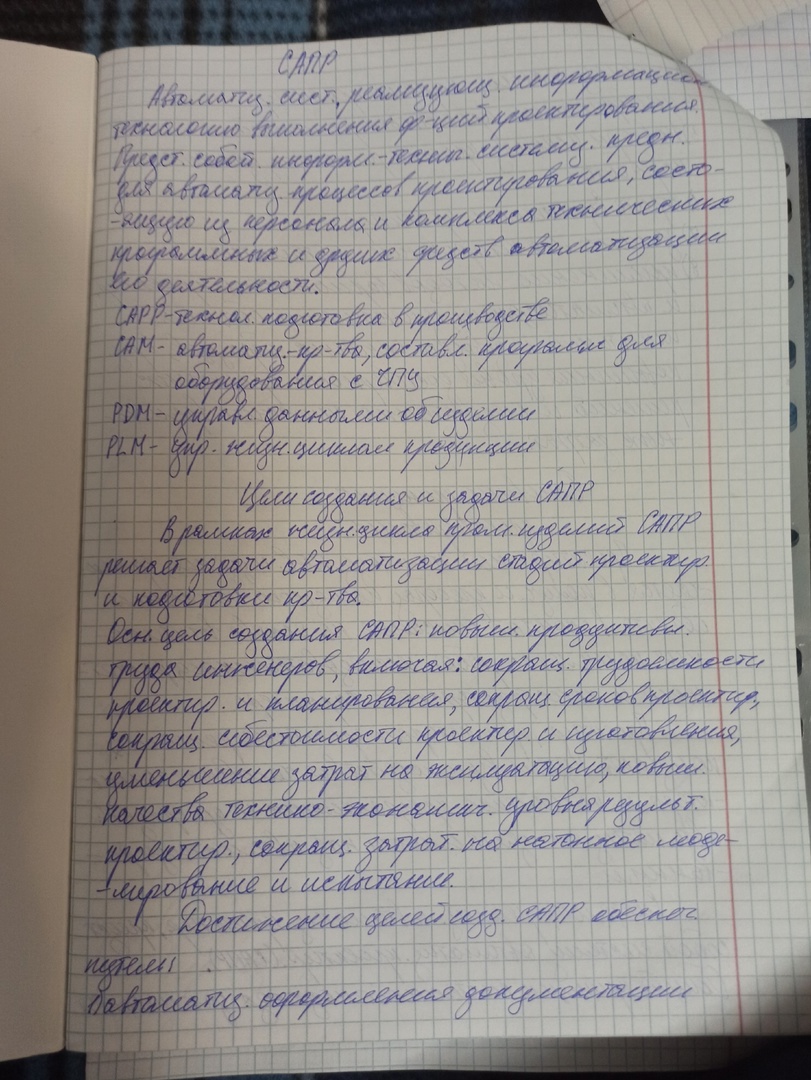 САПР
Автоматиз. сист., реализующ. информацион
технологию выполнения ф-ций проектирования.
Предст. собой. информ.-техны. систему. предн.
для автоматиз. процессов проектирования, состо-
-ящую из персонала и комплекса технических
программных и других средств автоматизации
его деятельности.
САРР-технол. подготовка в производстве
САМ- автоматиз.-пр-тва, составл. программ для
оборудования с ЧПУ
PDM- управл. данными об изделии
PLM- упр. жизн. циклом продукции
Цели создания и задачи САПР
В рамках жизн. цикла пром. изделий САПР
решает задачи автоматизации стадий проектир.
и подготовки пр-тва.
Осн. цель создания САПР: повыш. продуктивн.
труда инженеров, включая: сокращ. трудоемкости
проектир. и планирования, сокращ. сроков проектир,
сокращ. себестоимости проектир. и изготовления,
уменьшение затрат на эксплуатацию, повыш.
качества технико-экономич. уровня результ.
проектир., сокращ. затрат. на натонное моде-
-лирование и испытание.
Достижение целей созд. САПР обеспеч.
путем:
автоматиз. оформления документации